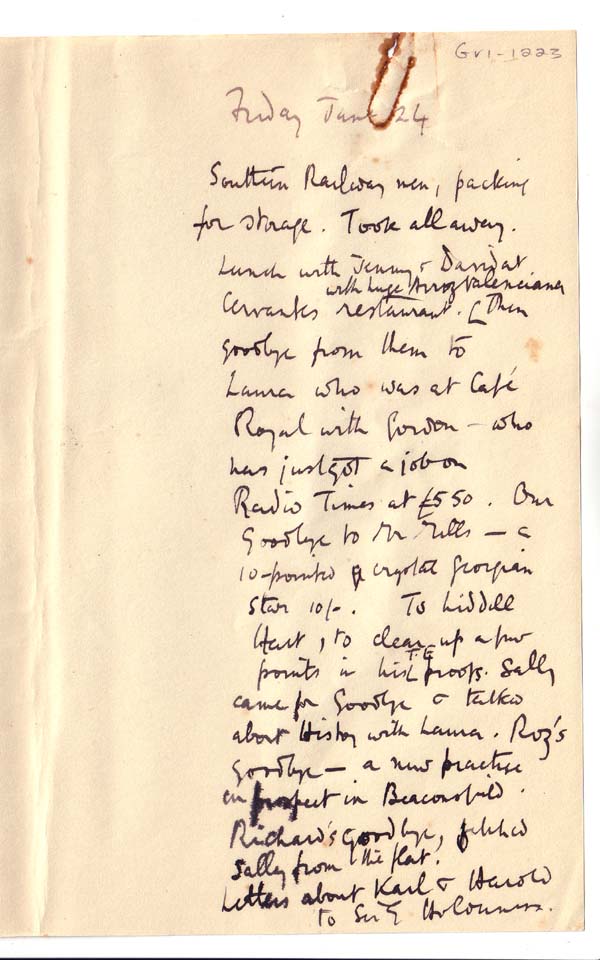 GV1-1223
Friday June 24
Southern Railway men, packing
for storage. Took all away.
Lunch with Jenny & David at
with huge Arroz Valenciana
Cervantes restaurant. [Then
goodbye from them to
Laura who was at Café
Royal with Gordon – who
has just got a job on
Radio Times at £550. Our
Goodbye to Mr Mills – a
10-pointed crystal Georgian
Star 10/-. To Liddell
Hart, to clear up a few
points in his T.E. proofs. Sally
came for Goodbye & talked
about History with Laura. Roz's
goodbye – a new practise
in prospect in Beaconsfield.
Richard's goodbye, fetched
Sally from the flat.
Letters about Karl & Harold
to Sir E Holderness.